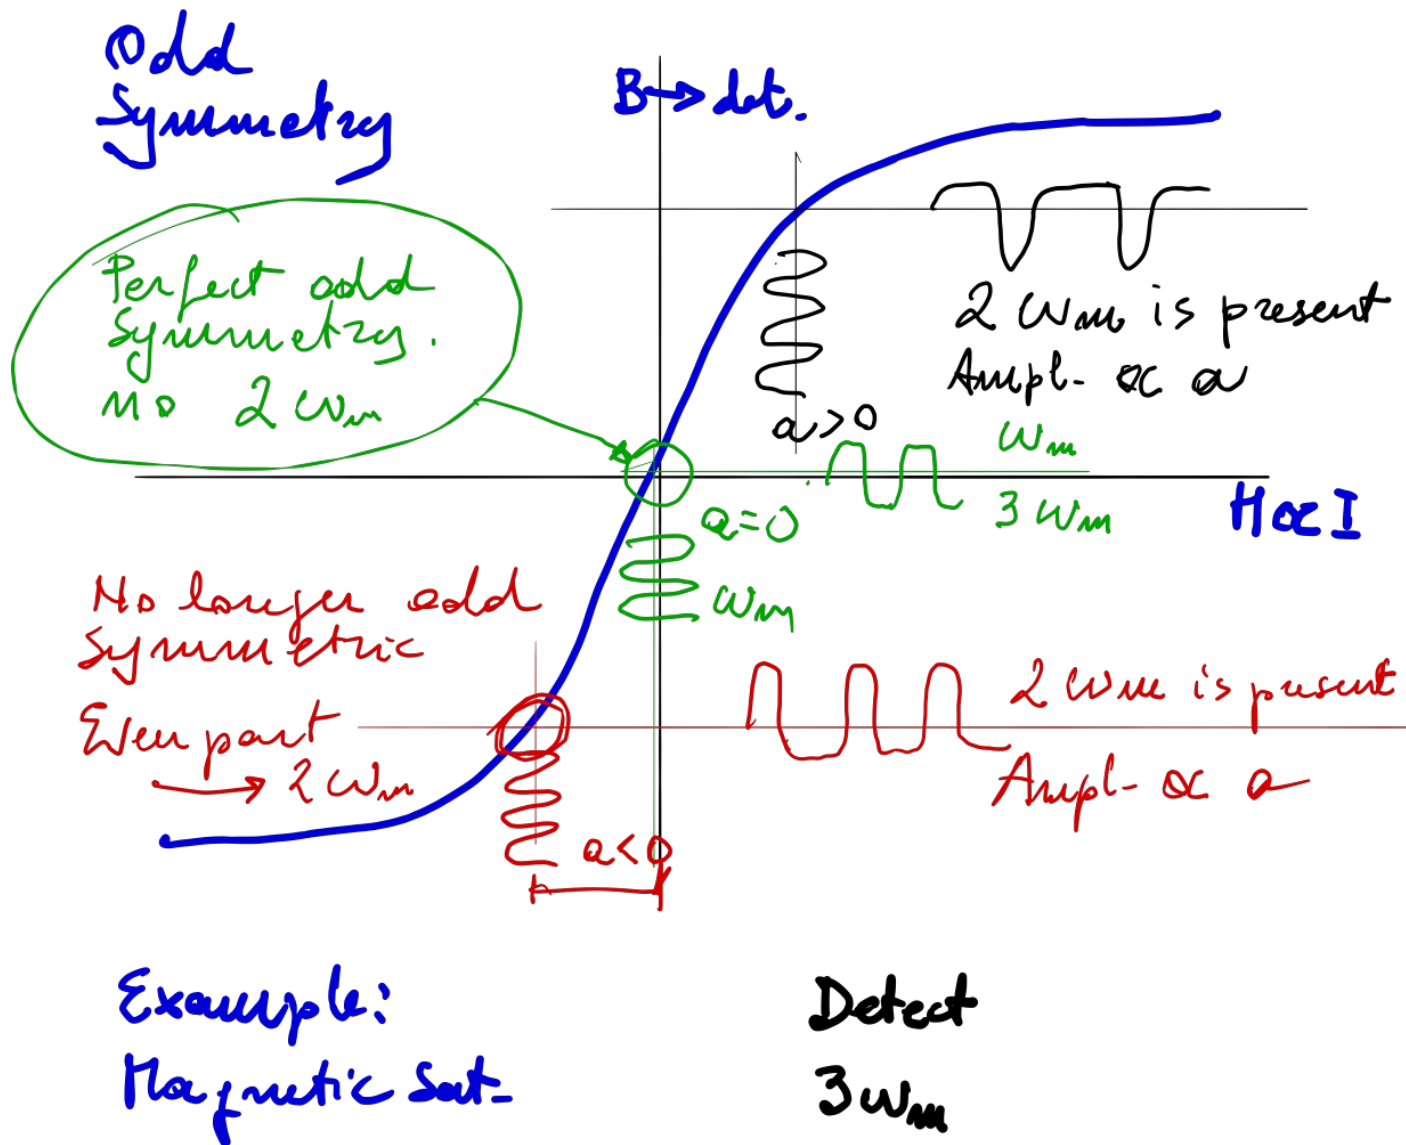 Odd
Symmetry
B → det.
Perfect odd
Symmetry.
no 2 ωm
2 ωm is present
Ampl- ∝ a
a > 0
ωm
3 ωm
H ∝ I
a = 0
ωm
No longer odd
Symmetric
Even part
→ 2 ωm
2 ωm is present
Ampl- ∝ a
a < 0
Example:
Magnetic Sat-
Detect
3 ωm